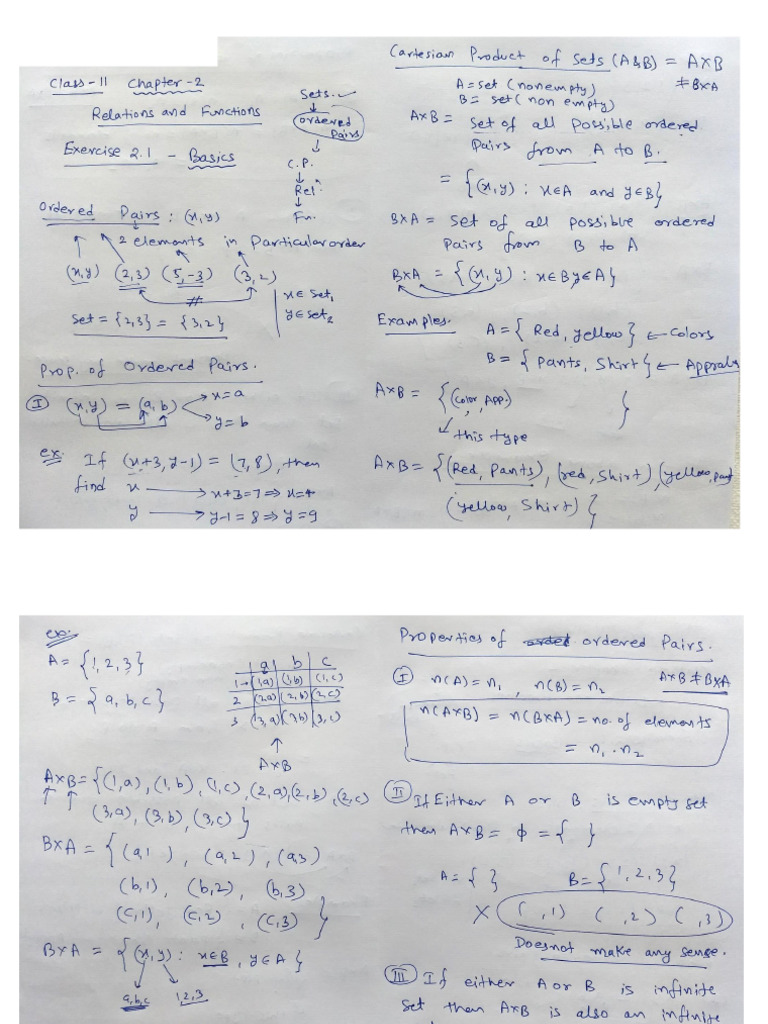 Class-11 Chapter-2
Relations and Functions
Exercise 2.1 - Basics
Sets.
↓
Ordered Pairs
↓
C.P.
↓
Rel:
↓
Fn.
Ordered Pairs : (x,y)
2 elements in Particular order
(x,y) (2,3) (5,-3) (3,2)
≠
x ∈ Set₁
y ∈ Set₂
Set = {2,3} = {3,2}
Prop. of Ordered Pairs.
I (x,y) = (a,b) → x=a
→ y=b
ex: If (x+3, y-1) = (7,8), then
find x → x+3=7 ⇒ x=4
y → y-1=8 ⇒ y=9
Cartesian Product of Sets (A&B) = A×B
≠ B×A
A = set (nonempty)
B = set (non empty)
A×B = set of all possible ordered
Pairs from A to B.
= {(x,y) : x∈A and y∈B}
B×A = set of all possible ordered
pairs from B to A
B×A = {(x,y) : x∈B y∈A}
Examples.
A = { Red, yellow } ← Colors
B = { Pants, Shirt } ← Apprals
A×B = { (Color, App.) }
↙ this type
A×B = {(Red, Pants), (red, Shirt) (yellow, pant)
(yellow, Shirt) }
ex:
A = {1,2,3}
B = { a, b, c }
a b c
1→ (1,a) (1,b) (1,c)
2 (2,a) (2,b) (2,c)
3 (3,a) (3,b) (3,c)
↑
A×B
A×B = {(1,a), (1,b), (1,c), (2,a), (2,b), (2,c)
(3,a), (3,b), (3,c) }
B×A = { (a,1), (a,2), (a,3)
(b,1), (b,2), (b,3)
(c,1), (c,2), (c,3) }
B×A = { (x,y) : x∈B, y∈A }
a,b,c 1,2,3
Properties of ordered Pairs.
I n(A) = n₁, n(B) = n₂ A×B ≠ B×A
n(A×B) = n(B×A) = no. of elements
= n₁ . n₂
II If Either A or B is empty set
then A×B = ϕ = { }
A = { } B = {1,2,3}
X ( ,1) ( ,2) ( ,3)
Does not make any sense.
III If either A or B is infinite
set then A×B is also an infinite